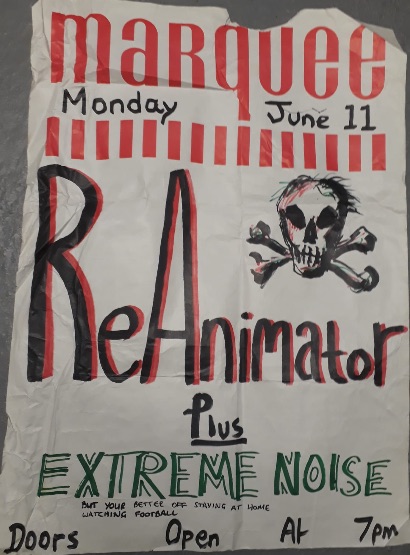 marquee
Monday June 11
ReAnimator
Plus
EXTREME NOISE
BUT YOUR BETTER OFF STAYING AT HOME
WATCHING FOOTBALL
Doors Open At 7pm